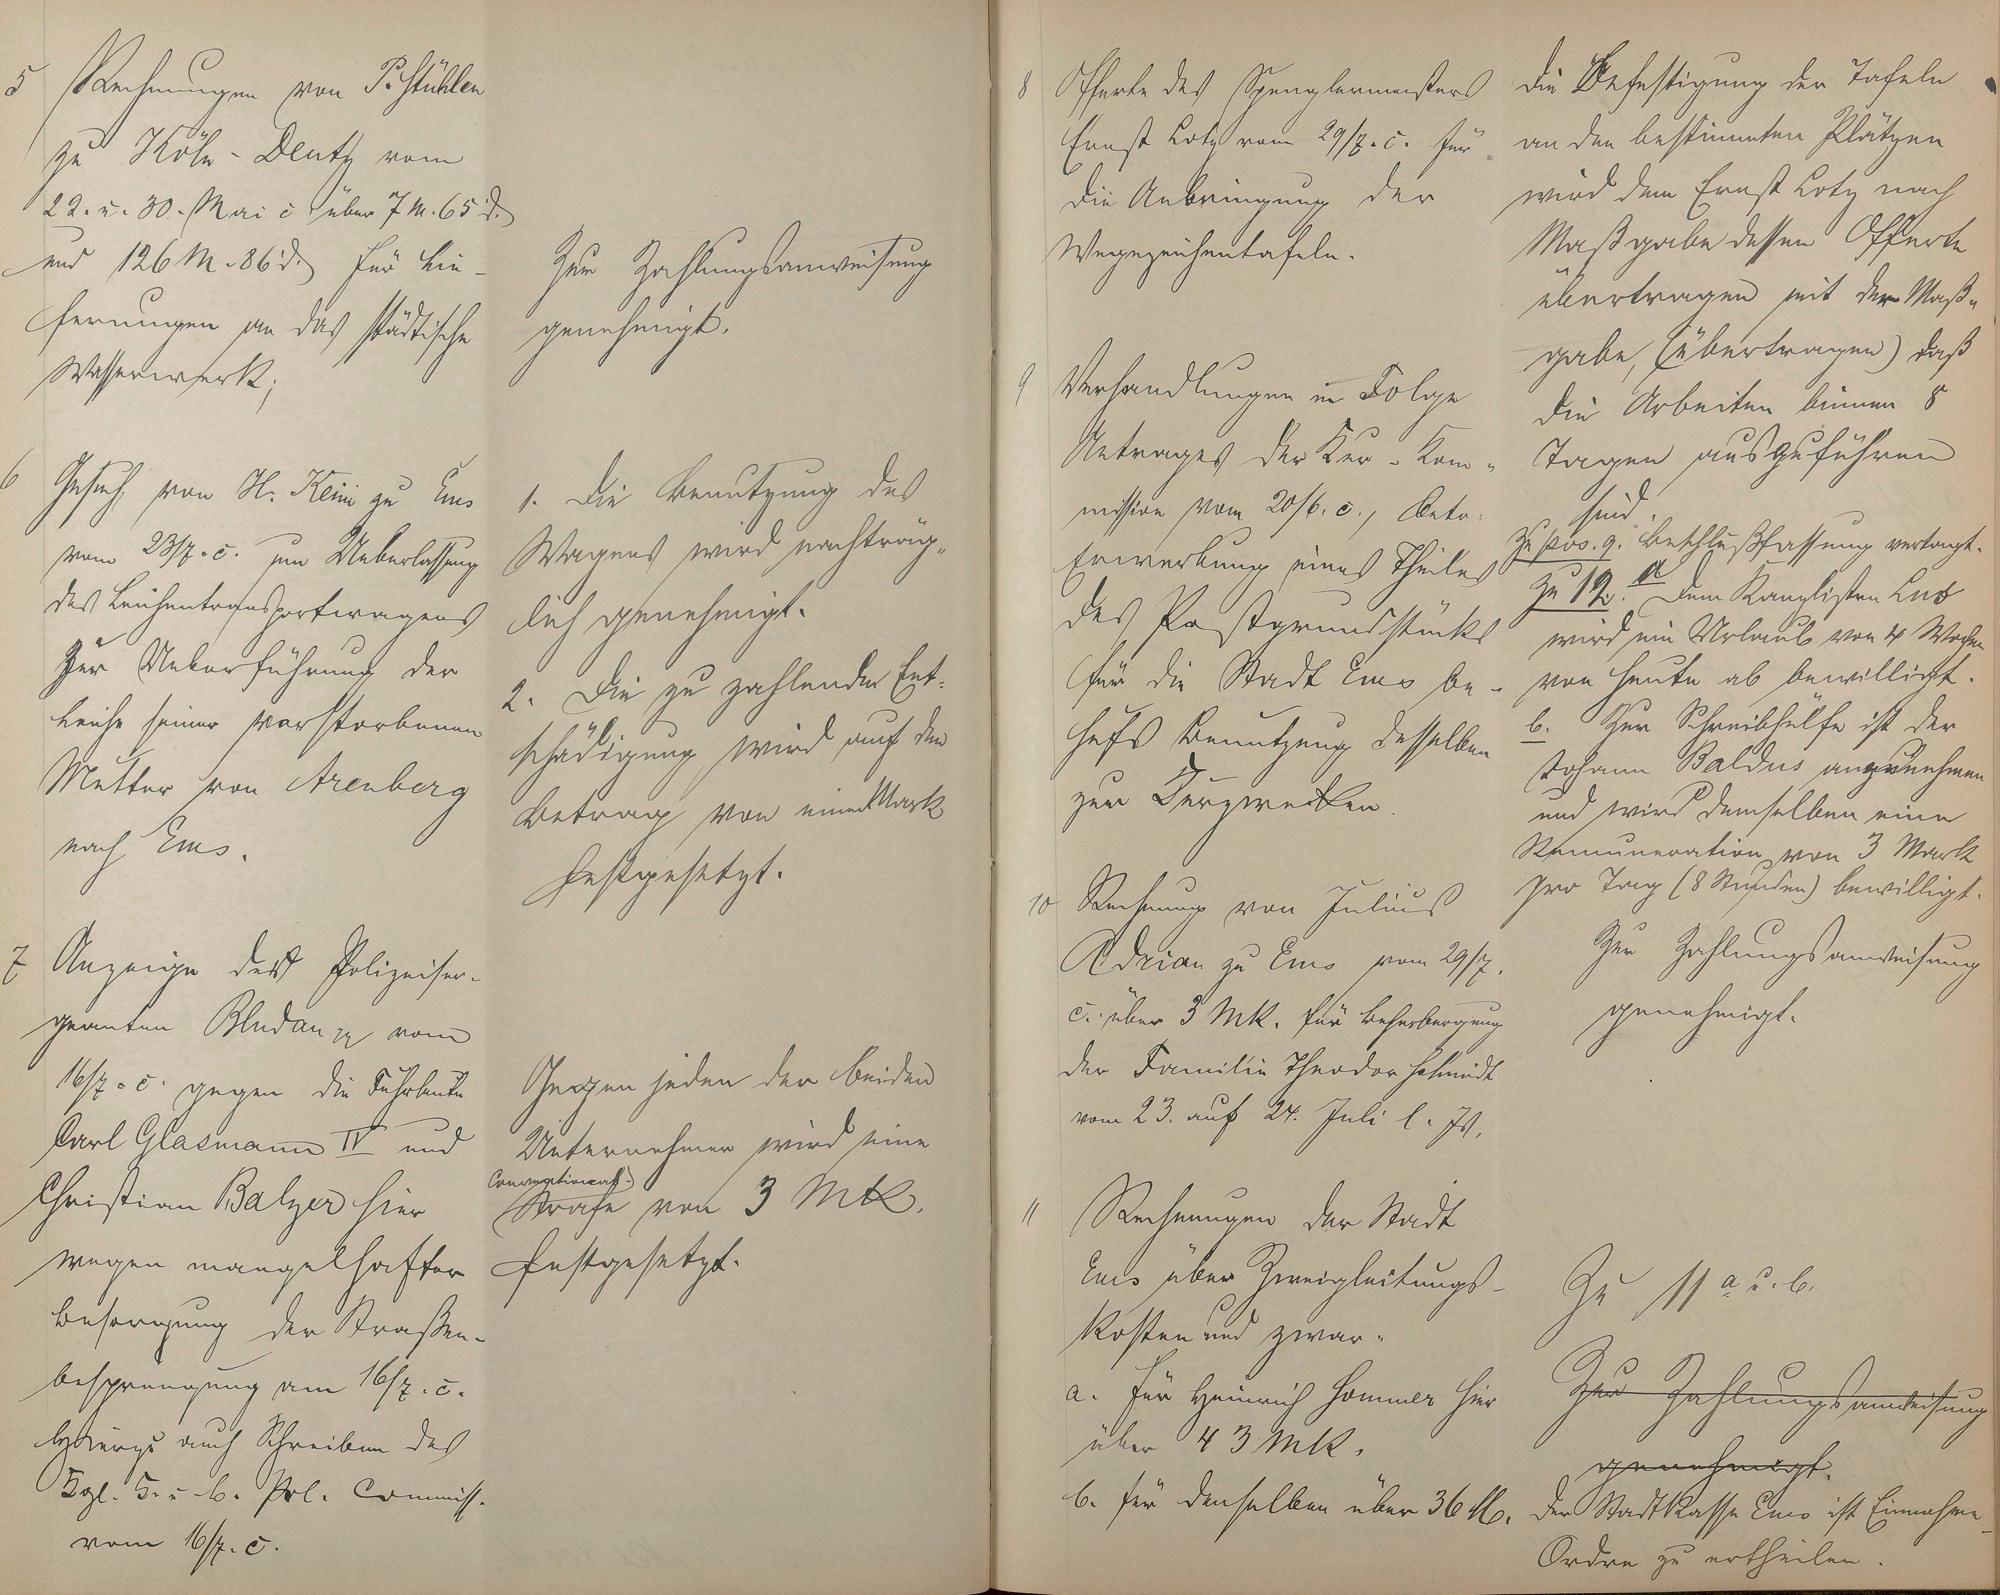 5 Rechnungen von P. Stühlen
zu Köln-Deutz vom
22. u. 30. Mai c. über 7 M. 65 d.
und 126 M. 86 d. für Lie-
ferungen an das städtische
Wasserwerk;
Zur Zahlungsanweisung
genehmigt.
6 Gesuch von H. Keim zu Ems
vom 23/7. c. um Ueberlassung
des Leichentransportwagens
Zur Ueberführung der
Leiche seiner verstorbenen
Mutter von Arenberg
nach Ems.
1. Die Benutzung des
Wagens wird nachträg-
lich genehmigt.
2. Die zu zahlende Ent-
schädigung wird auf den
Betrag von einer Mark
festgesetzt.
7 Anzeige des Polizeiser-
geanten vom
16/7. c. gegen die Fuhrleute
Carl Glasmann IV und
Christian Balzer hier
wegen mangelhafter
Besorgung der Straßen-
besprengung am 16/7. c.
hierzu auch Schreiben des
Kgl. B. u. b. Pol. Commiss.
vom 16/7. c.
Gegen jeden der beiden
Unternehmer wird eine
Conventional-
Strafe von 3 Mk.
festgesetzt.
8 Offerte des Spenglermeisters
Ernst Lotz vom 29/7. c. für
die Anbringung der
Wegezeichentafeln.
Die Befestigung der Tafeln
an den bestimmten Plätzen
wird dem Ernst Lotz nach
Maßgabe dessen Offerte
übertragen mit der Maß-
gabe, (übertragen) daß
die Arbeiten binnen 8
Tagen auszuführen
sind.
9 Verhandlungen in Folge
Antrages der Kur-Kom-
mission vom 20/6. c., betr.
Erwerbung eines Theiles
des Postgrundstücks
für die Stadt Ems be-
hufs Benutzung desselben
zu Kurzwecken.
Zu pos. 9. Beschlußfassung vertagt.
Zu 12. a Dem Kanzlisten
wird ein Urlaub von 4 Wochen
von heute ab bewilligt.
b. Zur Schreibhülfe ist der
Johann Baldus anzunehmen
und wird demselben eine
Remuneration von 3 Mark
pro Tag (8 Stunden) bewilligt.
10 Rechnung von Julius
Adrian zu Ems vom 29/7.
c. über 3 Mk. für Beherbergung
der Familie Theodor Schmidt
vom 23. auf 24. Juli l. Js.
Zur Zahlungsanweisung
genehmigt.
11 Rechnungen der Stadt
Ems über Zweigleitungs-
kosten und zwar.
a. für Heinrich Sommer hier
über 43 Mk.
b. für denselben über 36 M.
Zu 11 a u. b.
Zur Zahlungsanweisung
genehmigt.
Der Stadtkasse Ems ist Einnahme-
Ordre zu ertheilen.